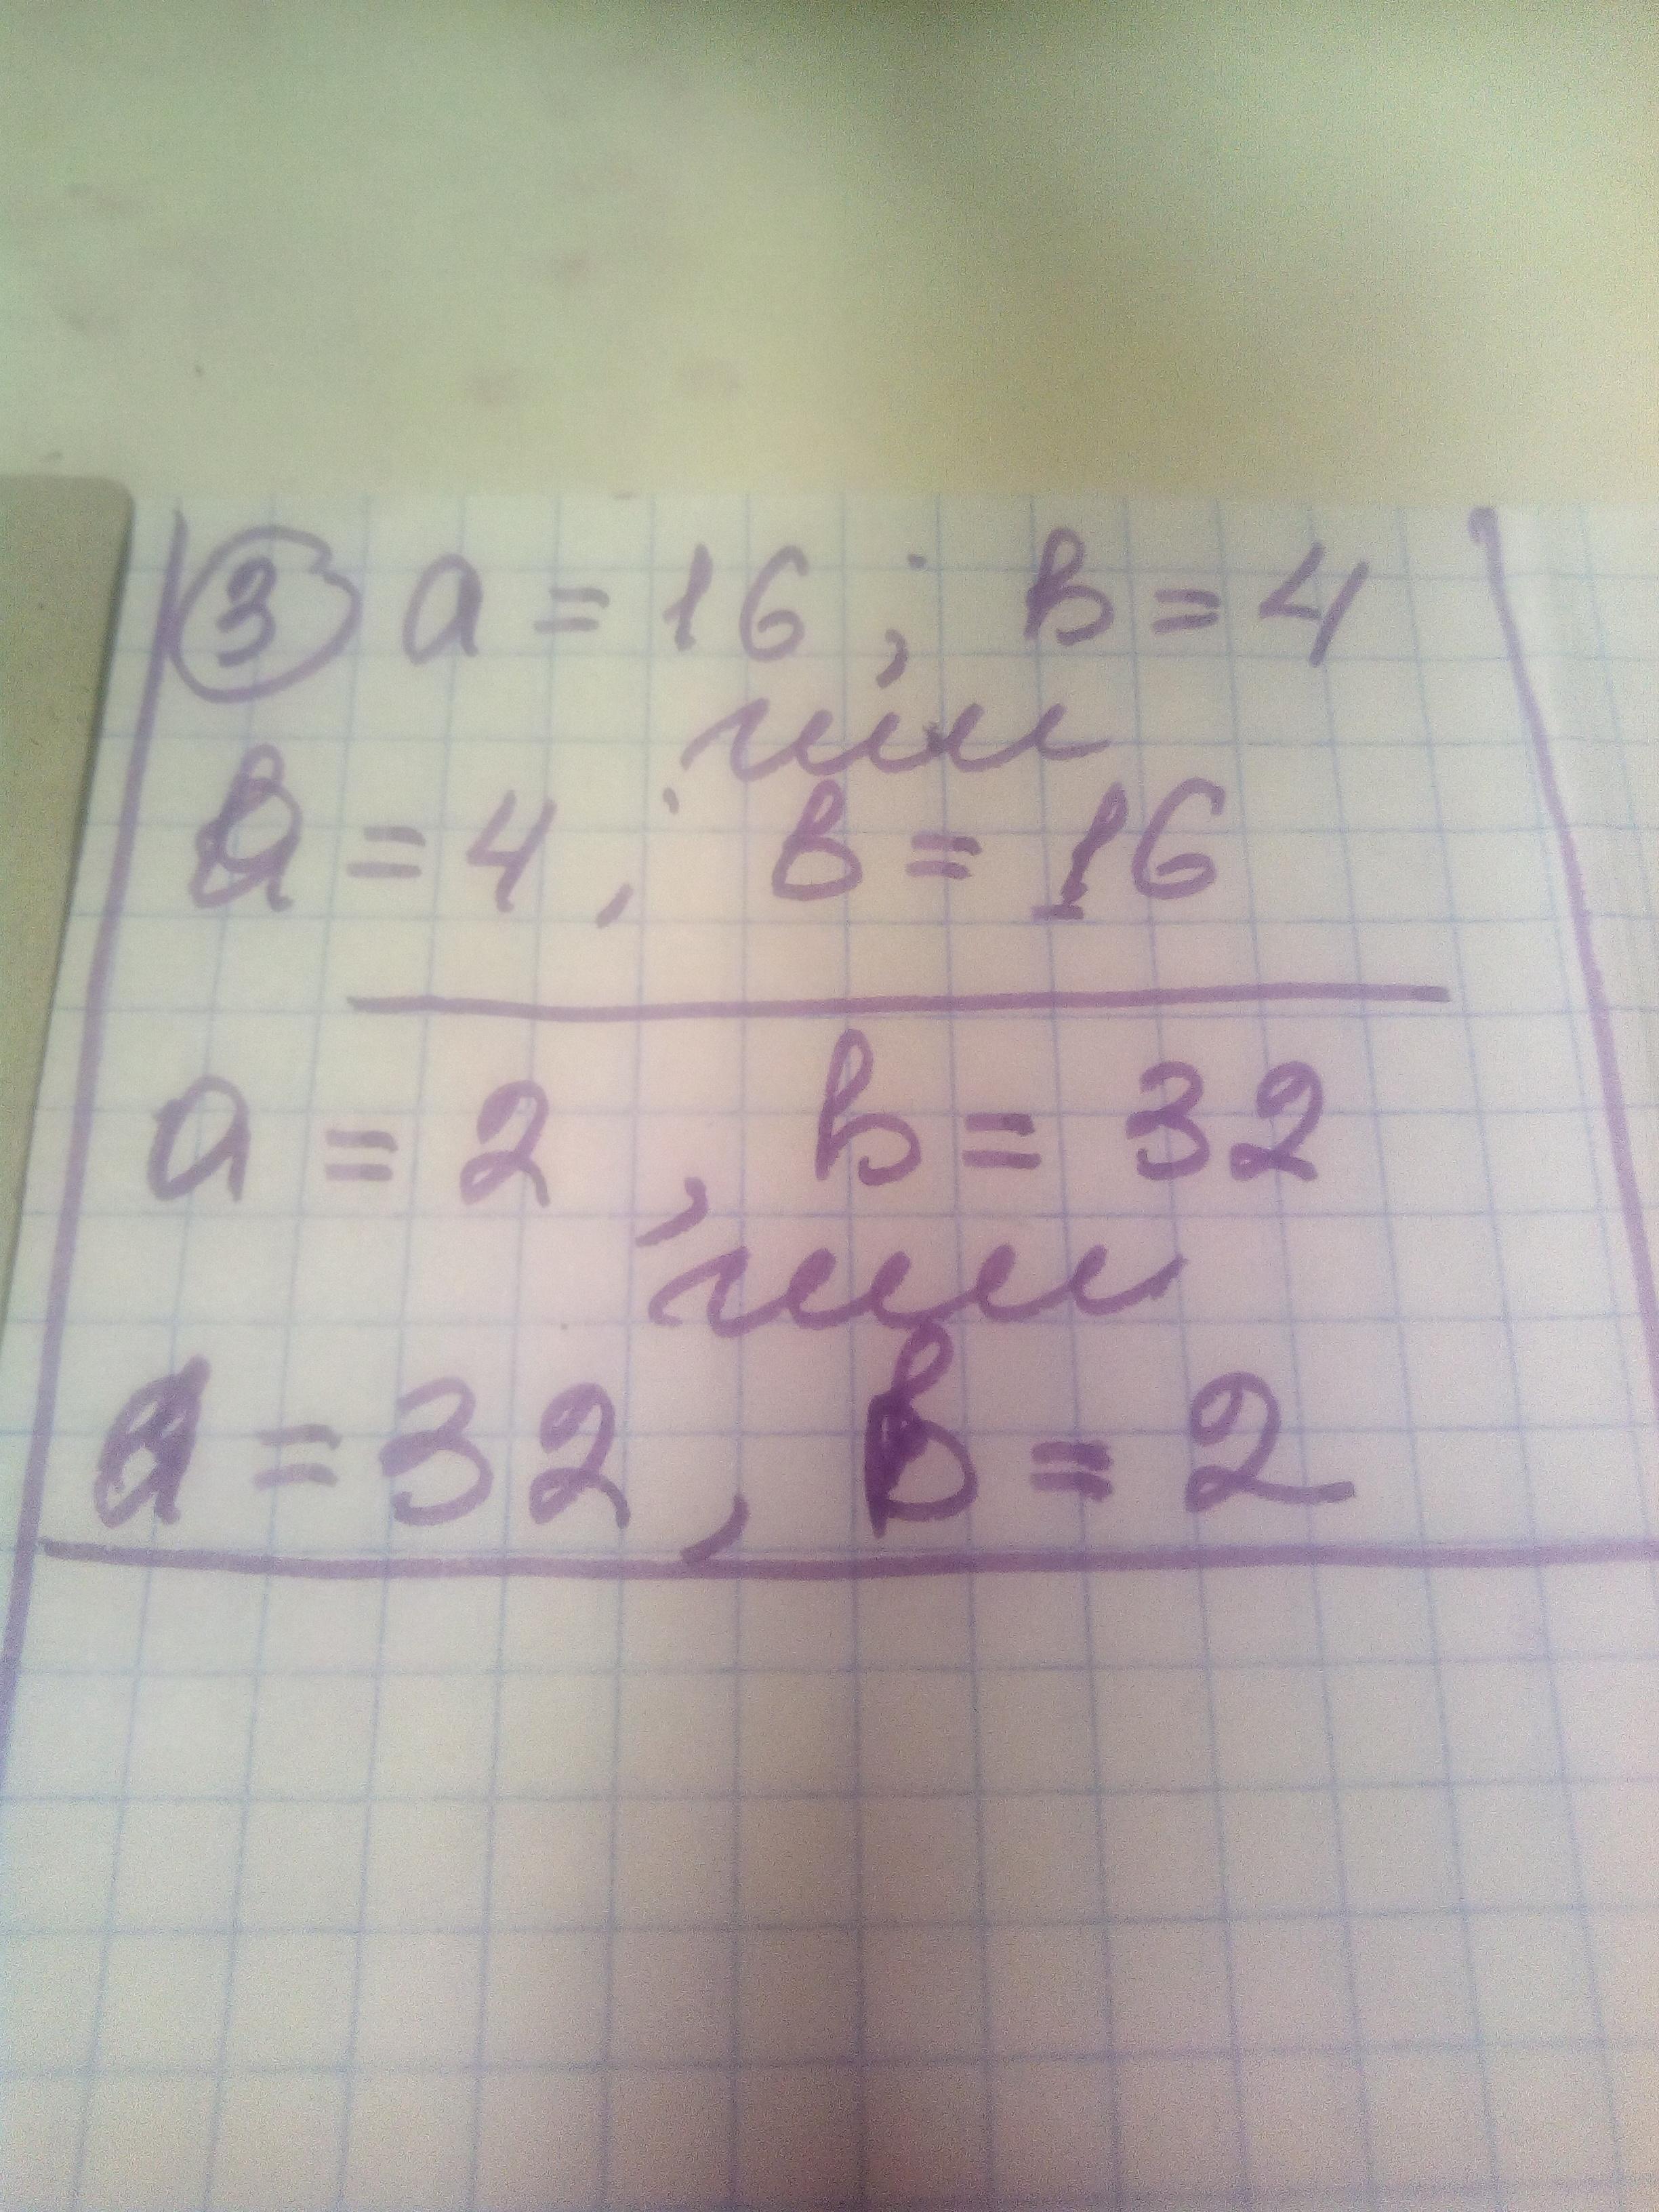 3 a = 16 ; в = 4
или
a = 4 , в = 16
a = 2 , в = 32
или
a = 32 , в = 2